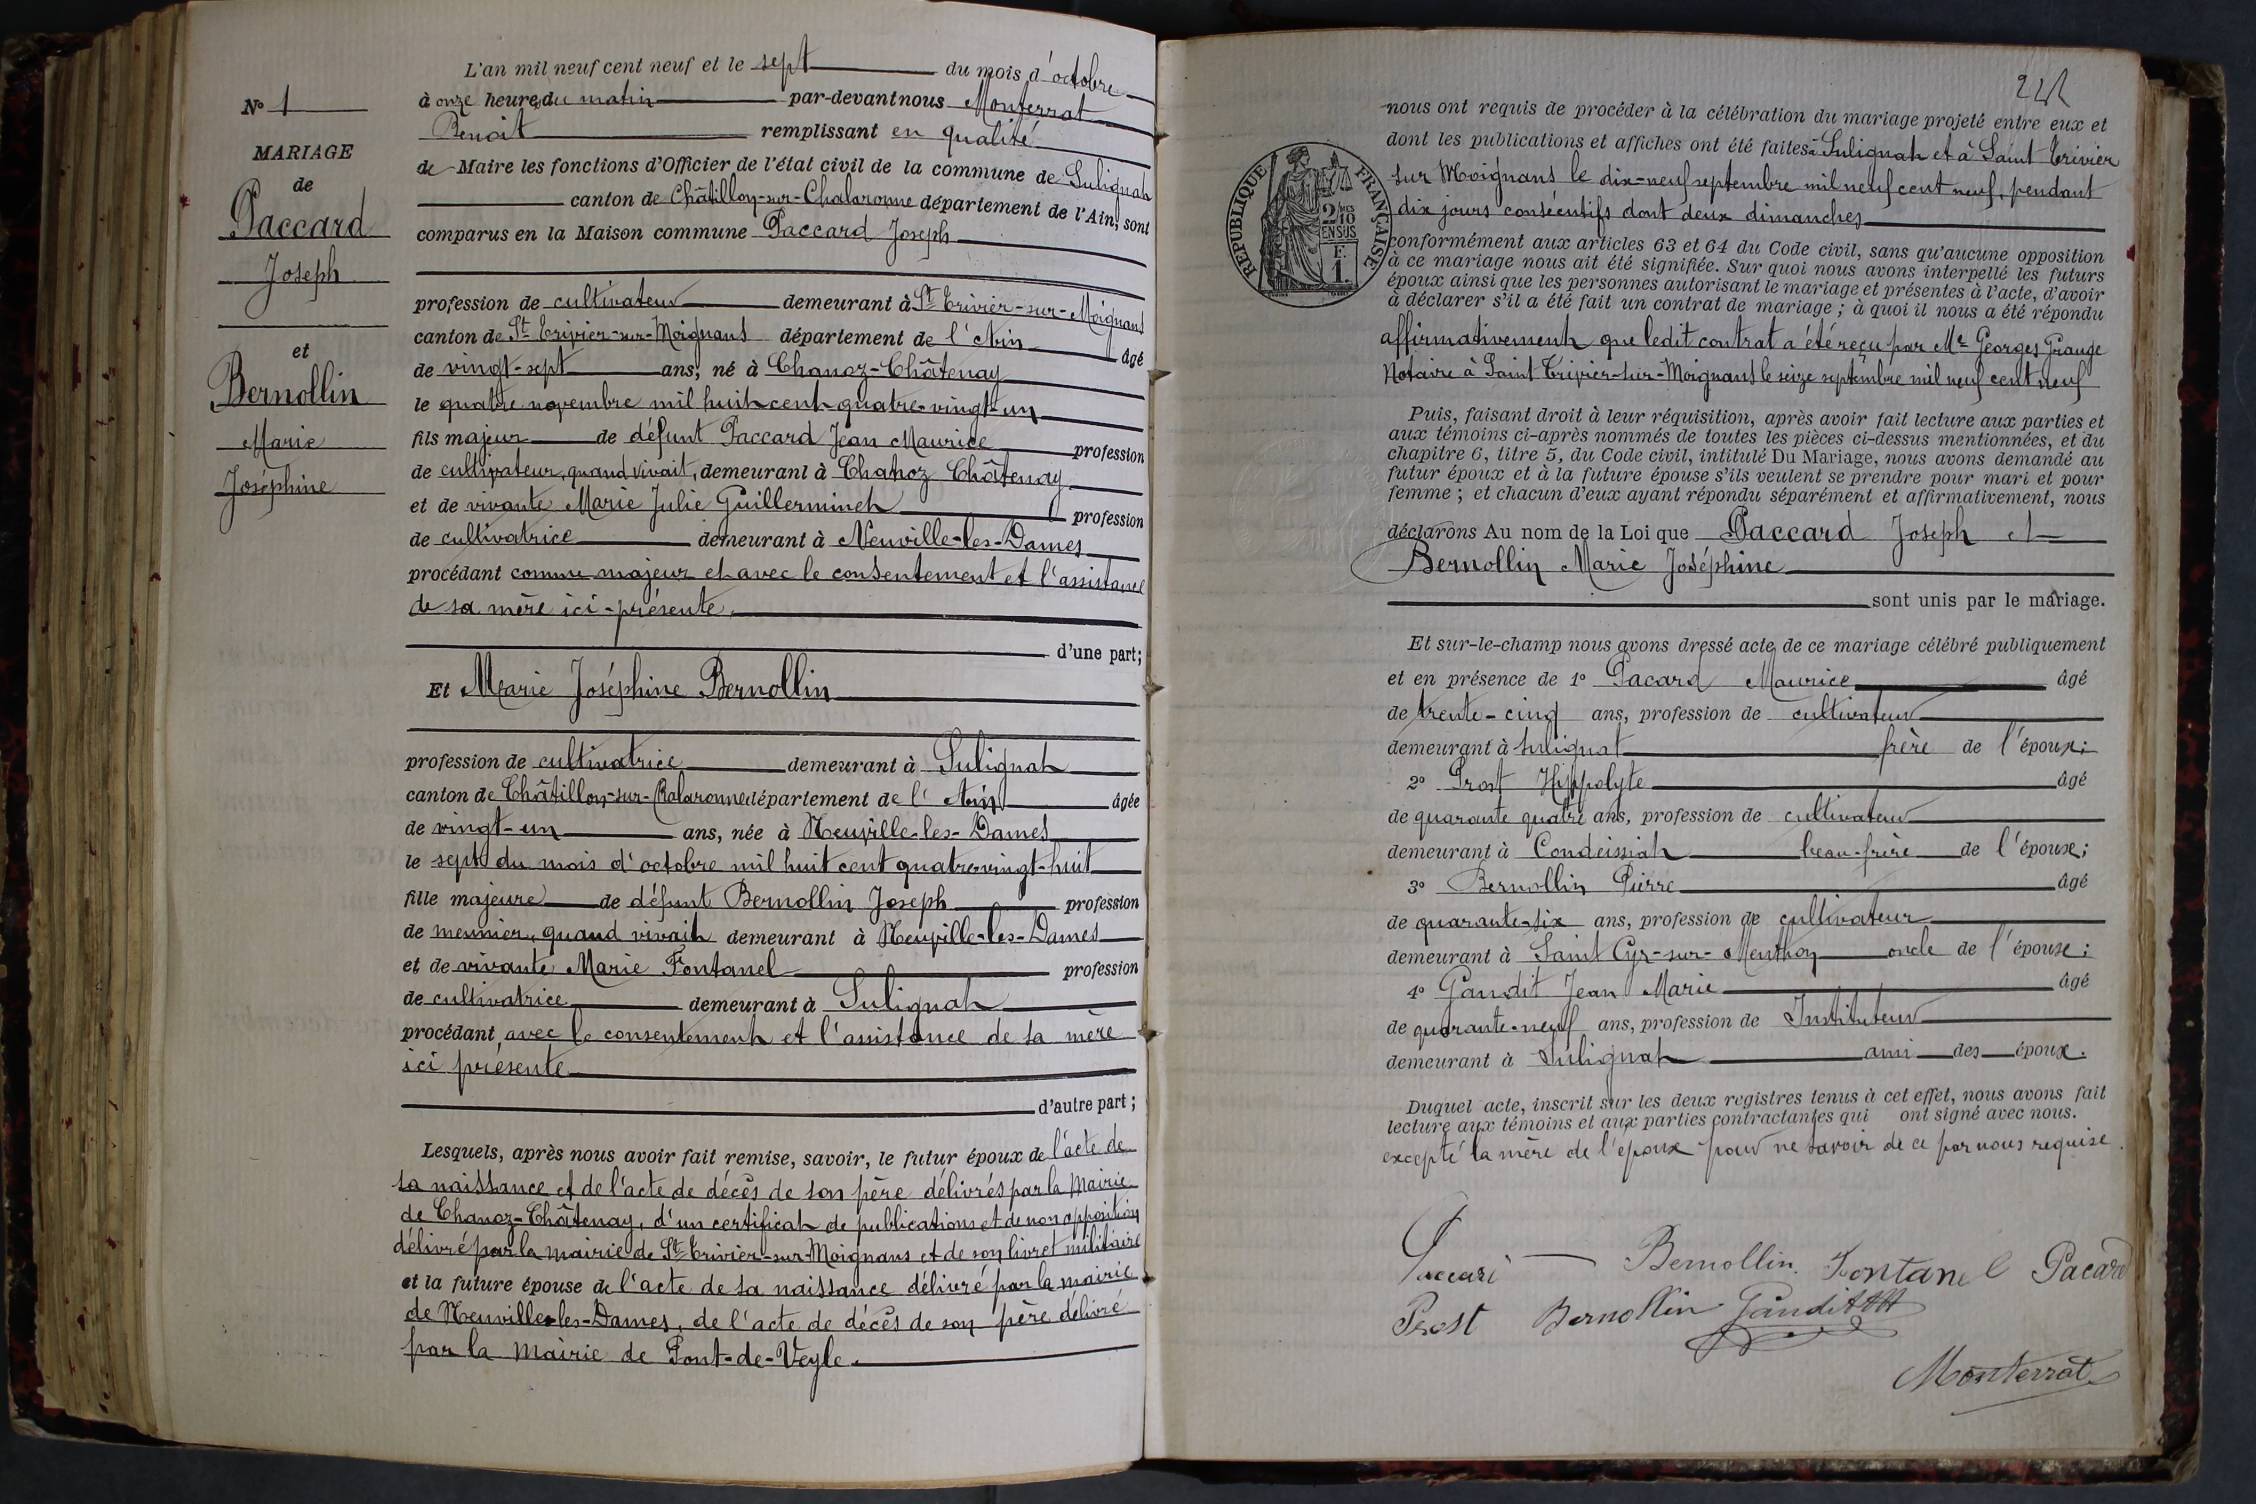 N° 1
MARIAGE
de
Paccard
Joseph
et
Bernollin
Marie
Joséphine
L'an mil neuf cent neuf et le sept du mois d'octobre
à onze heures du matin par-devant nous Monterrat
Benoit remplissant en qualité
de Maire les fonctions d'Officier de l'état civil de la commune de Sulignat
canton de Châtillon-sur-Chalaronne département de l'Ain, sont
comparus en la Maison commune Paccard Joseph
profession de cultivateur demeurant à St Trivier-sur-Moignans
canton de St Trivier-sur-Moignans département de l'Ain âgé
de vingt-sept ans, né à Chanoz-Châtenay
le quatre novembre mil huit cent quatre-vingt-un
fils majeur de défunt Paccard Jean Maurice profession
de cultivateur, quand vivait, demeurant à Chanoz Châtenay
et de vivante Marie Julie Guillerminet profession
de cultivatrice demeurant à Neuville-les-Dames
procédant comme majeur et avec le consentement et l'assistance
de sa mère ici-présente,
d'une part;
Et Marie Joséphine Bernollin
profession de cultivatrice demeurant à Sulignat
canton de Châtillon-sur-Chalaronne département de l'Ain âgée
de vingt-un ans, née à Neuville-les-Dames
le sept du mois d'octobre mil huit cent quatre-vingt-huit
fille majeure de défunt Bernollin Joseph profession
de meunier, quand vivait demeurant à Neuville-les-Dames
et de vivante Marie Fontanel profession
de cultivatrice demeurant à Sulignat
procédant avec le consentement et l'assistance de sa mère
ici présente
d'autre part;
Lesquels, après nous avoir fait remise, savoir, le futur époux de l'acte de
sa naissance et de l'acte de décès de son père délivrés par la Mairie
de Chanoz-Châtenay, d'un certificat de publications et de non opposition
délivré par la mairie de St Trivier-sur-Moignans et de son livret militaire
et la future épouse de l'acte de sa naissance délivré par la mairie
de Neuville-les-Dames, de l'acte de décès de son père délivré
par la Mairie de Pont-de-Veyle.
RÉPUBLIQUE FRANÇAISE
2/10 MES
EN SUS
F.
1.
nous ont requis de procéder à la célébration du mariage projeté entre eux et
dont les publications et affiches ont été faites à Sulignat et à Saint Trivier
sur Moignans le dix-neuf septembre mil neuf cent neuf, pendant
dix jours consécutifs dont deux dimanches
conformément aux articles 63 et 64 du Code civil, sans qu'aucune opposition
à ce mariage nous ait été signifiée. Sur quoi nous avons interpellé les futurs
époux ainsi que les personnes autorisant le mariage et présentes à l'acte, d'avoir
à déclarer s'il a été fait un contrat de mariage; à quoi il nous a été répondu
affirmativement que ledit contrat a été reçu par Me Georges Grange
Notaire à Saint Trivier-sur-Moignans le seize septembre mil neuf cent neuf
Puis, faisant droit à leur réquisition, après avoir fait lecture aux parties et
aux témoins ci-après nommés de toutes les pièces ci-dessus mentionnées, et du
chapitre 6, titre 5, du Code civil, intitulé Du Mariage, nous avons demandé au
futur époux et à la future épouse s'ils veulent se prendre pour mari et pour
femme; et chacun d'eux ayant répondu séparément et affirmativement, nous
déclarons Au nom de la Loi que Paccard Joseph et
Bernollin Marie Joséphine
sont unis par le mariage.
Et sur-le-champ nous avons dressé acte de ce mariage célébré publiquement
et en présence de 1° Pacard Maurice âgé
de trente-cinq ans, profession de cultivateur
demeurant à Sulignat frère de l'époux;
2° Prost Hippolyte âgé
de quarante quatre ans, profession de cultivateur
demeurant à Condeissiat beau-frère de l'épouse;
3° Bernollin Pierre âgé
de quarante-six ans, profession de cultivateur
demeurant à Saint Cyr-sur-Menthon oncle de l'épouse;
4° Gandit Jean Marie âgé
de quarante-neuf ans, profession de Instituteur
demeurant à Sulignat ami des époux.
Duquel acte, inscrit sur les deux registres tenus à cet effet, nous avons fait
lecture aux témoins et aux parties contractantes qui ont signé avec nous.
excepté la mère de l'époux pour ne savoir de ce par nous requise.
Paccard Bernollin Fontanel Pacard
Prost Bernollin Gandit
Monterrat